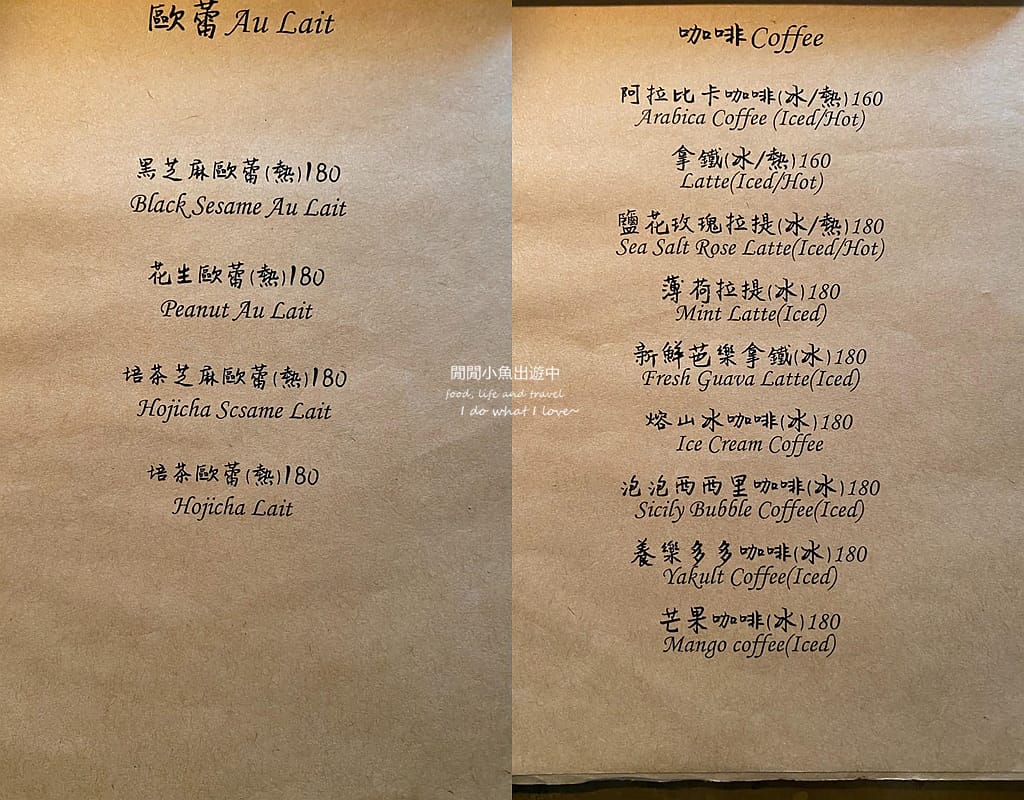 歐蕾 Au Lait
黑芝麻歐蕾(熱)180
Black Sesame Au Lait
花生歐蕾(熱)180
Peanut Au Lait
培茶芝麻歐蕾(熱)180
Hojicha Scsame Lait
培茶歐蕾(熱)180
Hojicha Lait
閒閒小魚出遊中
food, life and travel
I do what I love~
咖啡 Coffee
阿拉比卡咖啡(冰/熱)160
Arabica Coffee (Iced/Hot)
拿鐵(冰/熱)160
Latte(Iced/Hot)
鹽花玫瑰拉提(冰/熱)180
Sea Salt Rose Latte(Iced/Hot)
薄荷拉提(冰)180
Mint Latte(Iced)
新鮮芭樂拿鐵(冰)180
Fresh Guava Latte(Iced)
熔山冰咖啡(冰)180
Ice Cream Coffee
泡泡西西里咖啡(冰)180
Sicily Bubble Coffee(Iced)
養樂多多咖啡(冰)180
Yakult Coffee(Iced)
芒果咖啡(冰)180
Mango coffee(Iced)